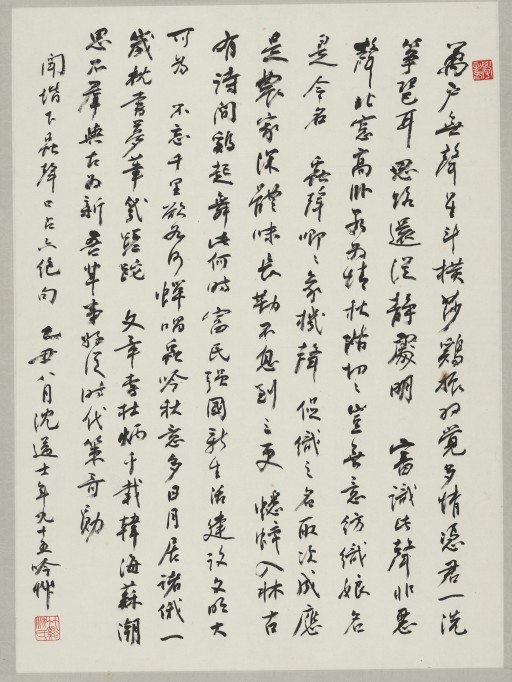 萬户無聲星斗橫莎鷄振羽覺多情憑君一洗
箏琶耳 思路還從靜處明 審識此聲非惡
聲北窗高卧最為情秋階切切豈無意紡織娘名
是令名 蟲聲唧唧象機聲促織之名取次成應
是農家深體味長勤不息到三更 蟋蟀入牀古
有詩聞鷄起舞此何時富民強國新生活建設文明大
可為 不忘千里欲如何蟬唱蟲吟秋意多日月居諸俄一
歲枕書夢華 蹉跎 文章李杜炳千載韓海蘇潮
思不羣典古為新吾輩事好從時代策奇勛
聞堦下蟲聲口占六絕句 乙丑八月沈邁士年九十五吟艸